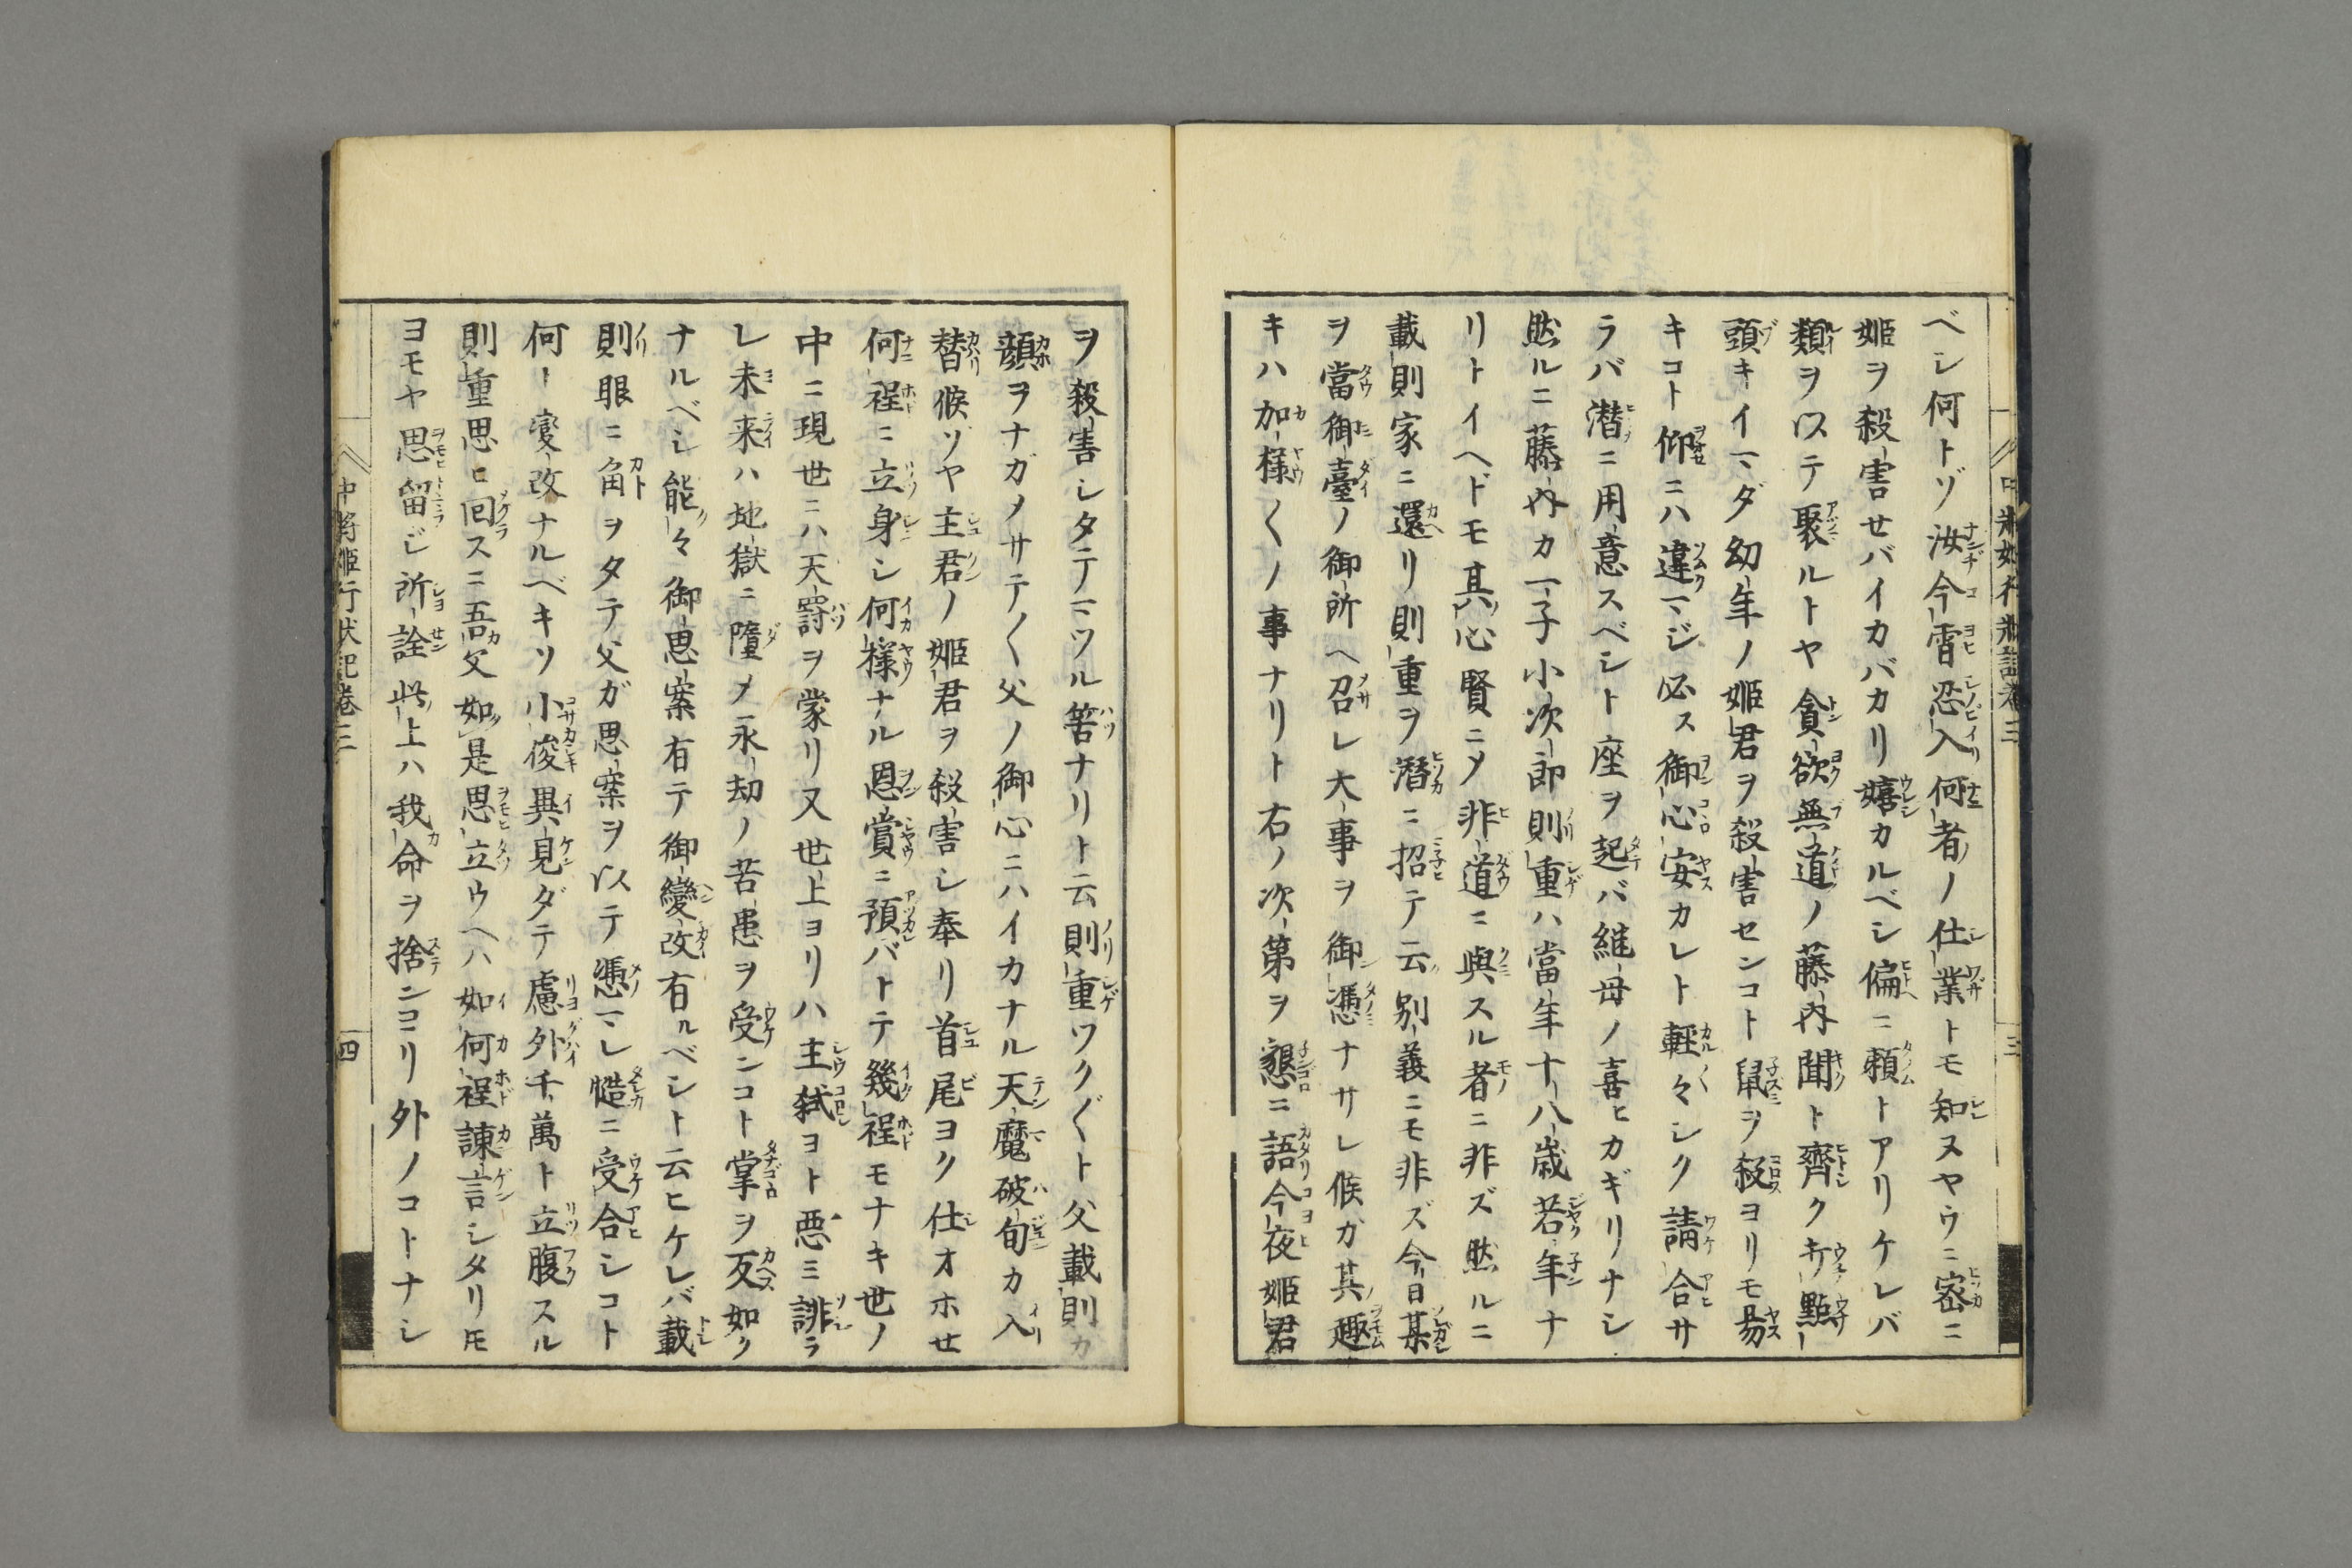 ベシ何トゾ汝今宵忍入何者ノ仕業トモ知ヌヤウニ密ニ
姫ヲ殺害セバイカバカリ嬉カルベシ偏ニ頼トアリケレバ
類ヲ以テ聚ルトヤ貪欲無道ノ藤内聞ト齊ク
頭キイマダ幼年ノ姫君ヲ殺害センコト鼠ヲ殺ヨリモ易
キコト仰ニハ違マジ必ス御心安カレト輕々シク請合サ
ラバ潜ニ用意スベシト座ヲ起バ継母ノ喜ヒカギリナシ
然ルニ藤内カ一子小次郎則重ハ當年十八歳若年ナ
リトイヘドモ其心賢ニメ非道ニ與スル者ニ非ズ然ルニ
載則家ニ還リ則重ヲ潜ニ招テ云別義ニモ非ズ今日某
ヲ當御臺ノ御所ヘ召レ大事ヲ御憑ナサレ候ガ其趣
キハ加様〱ノ事ナリト右ノ次第ヲ懇ニ語今夜姫君
ヲ殺害シタテマツル筈ナリト云則重ツク〲ト父載則カ
顔ヲナガメサテ〱父ノ御心ニハイカナル天魔破旬カ入
替候ゾヤ主君ノ姫君ヲ殺害シ奉リ首尾ヨク仕オホセ
何程ニ立身シ何様ナル恩賞ニ預バトテ幾程モナキ世ノ
中ニ現世ニハ天罸ヲ蒙リ又世上ヨリハ主弑ヨト悪ミ誹ラ
レ未来ハ地獄ニ墮メ永劫ノ苦患ヲ受ンコト掌ヲ反如ク
ナルベシ能々御思案有テ御變改有ルベシト云ヒケレバ載
則眼ニ角ヲタテ父ガ思案ヲ以テ憑マレ慥ニ受合シコト
何ト變改ナルベキソ小俊異見ダテ慮外千萬ト立腹スル
則重思ヒ回スニ吾父如是思立ウヘハ如何程諫言シタリ𪜈
ヨモヤ思留ジ所詮此上ハ我命ヲ捨ンコリ外ノコトナシ
中將姫行状記巻三
四